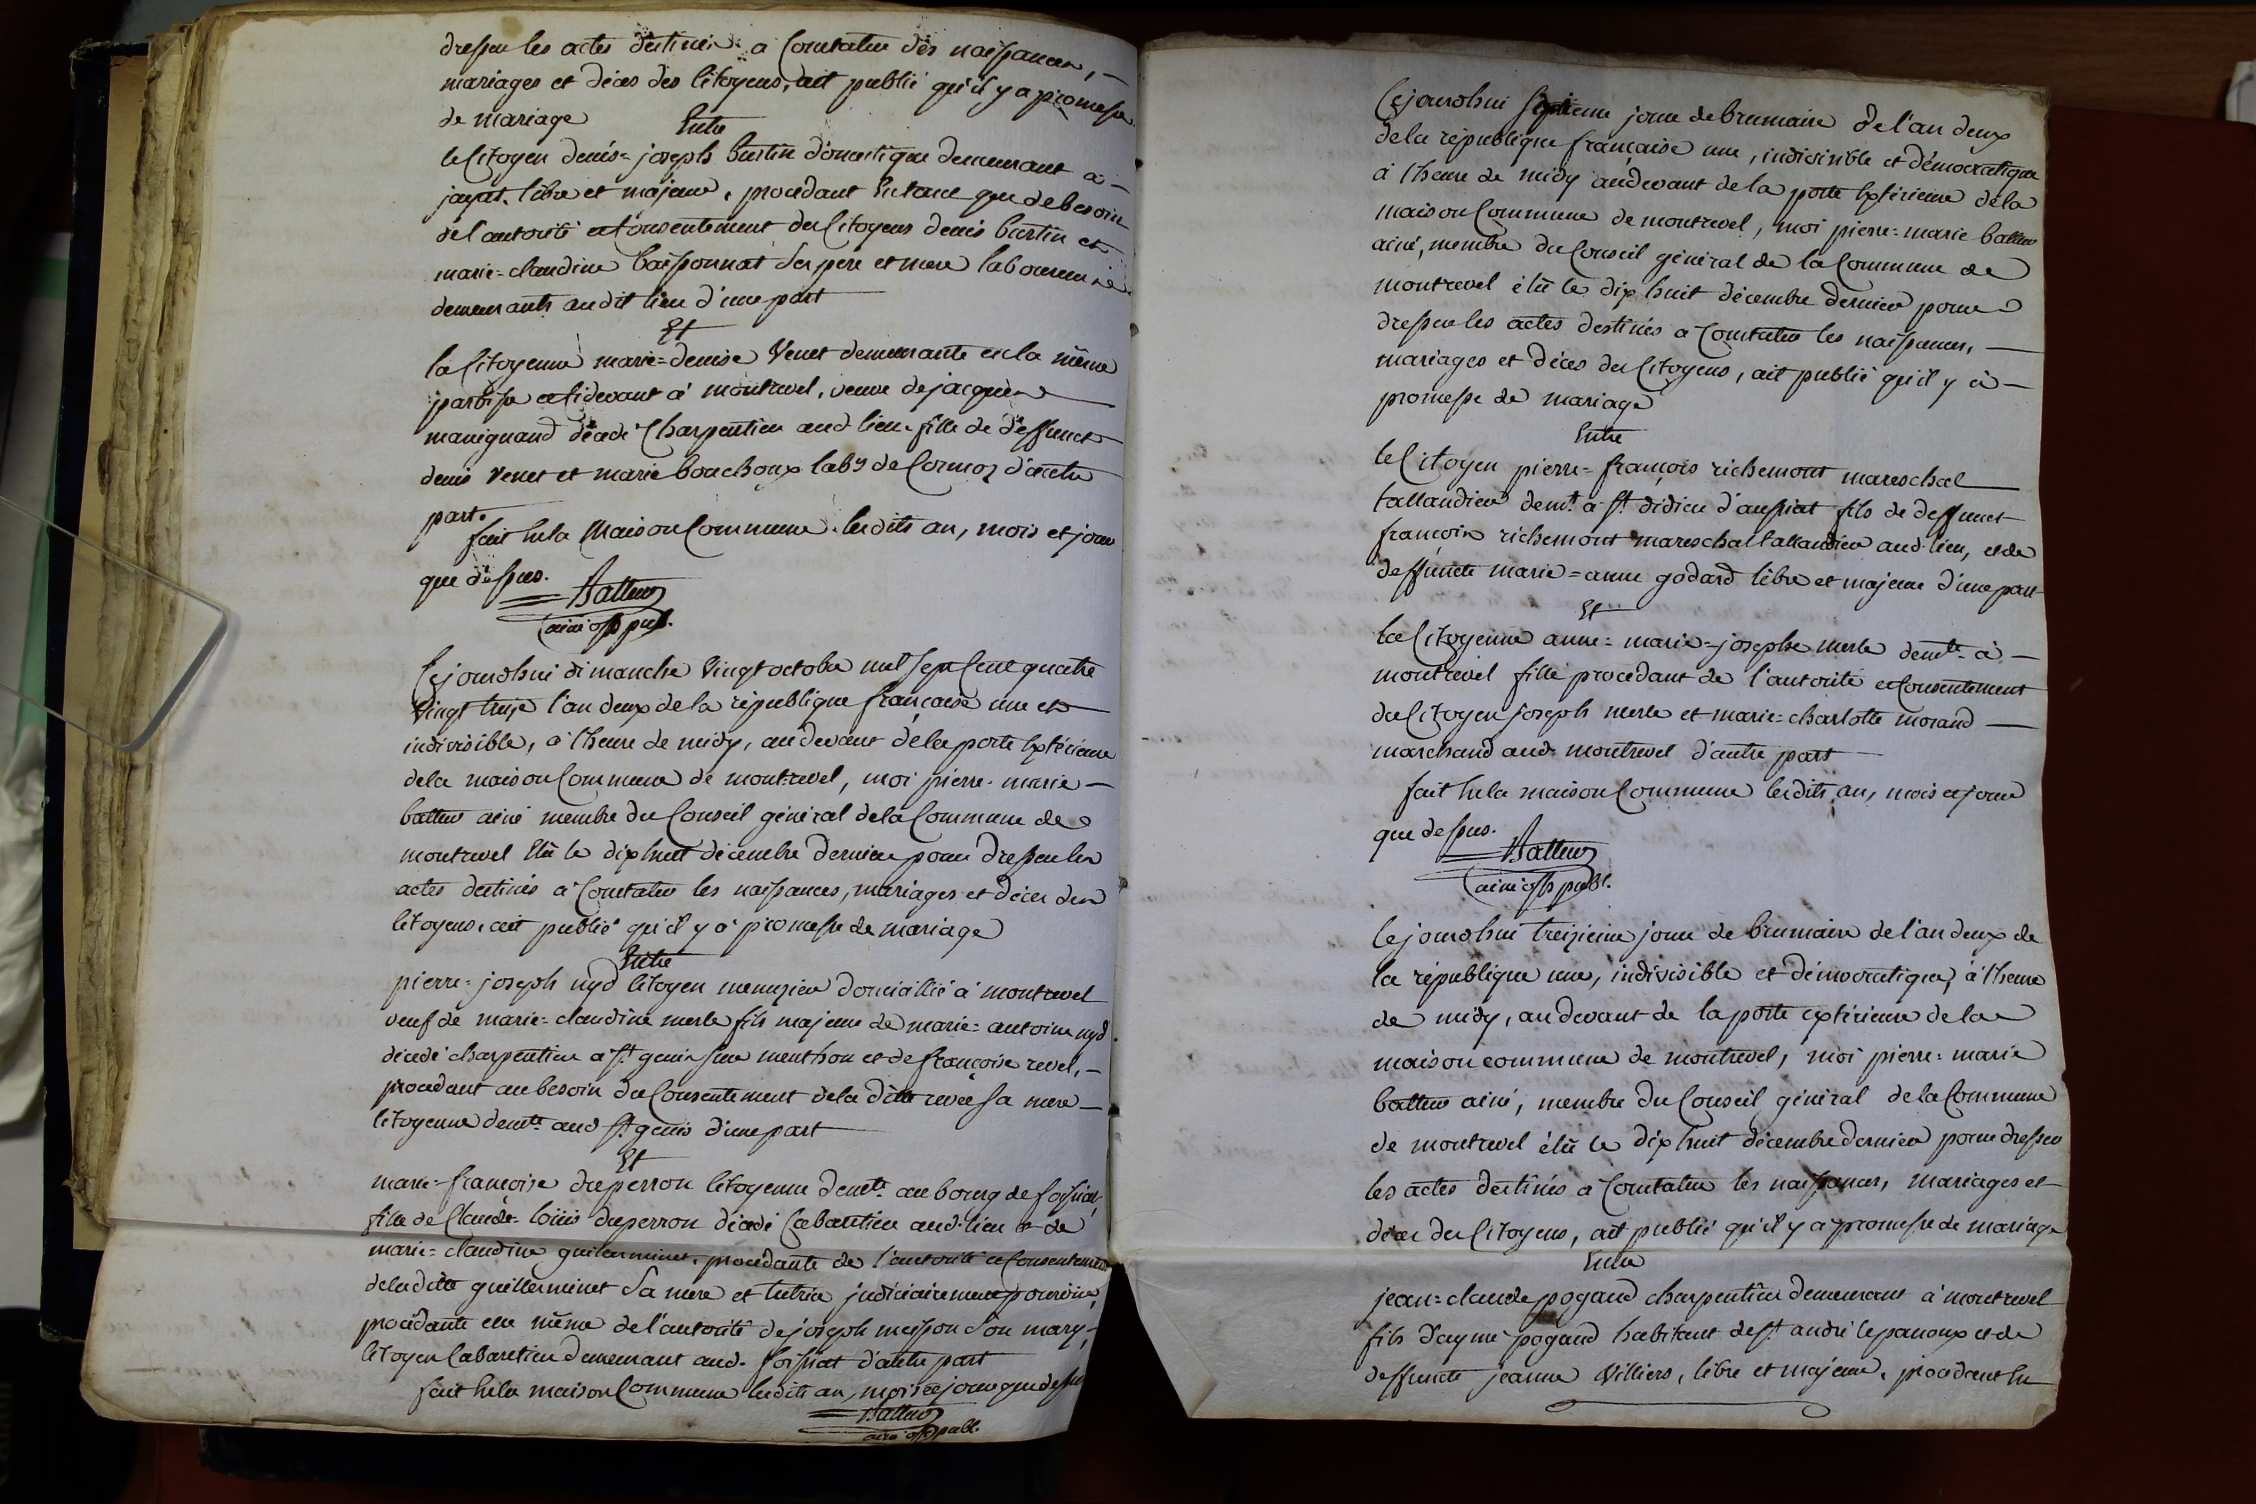 dresser les actes destinés a Constater des naissances,
mariages et décès des Citoyens, ait publié qu'il y a promesse
de mariage
Entre
le Citoyen denis=joseph burtin domestique demeurant a
jayat, libre et majeur, procedant Entant que de besoin
de l'autorité et Consentement des Citoyens denis burtin et
marie=claudine baissonnat Ses pere et mere laboureurs
demeurants audit lieu d'une part
Et
la Citoyenne marie=denise Venet demeurante en la même
paroisse et Cidevant a montrevel, veuve de jacques
manignand décédé Charpentier aud lieu fille de deffunct
denis venet et marie bouchoux laby de Cormoz d'autre
part.
fait En la Maison Commune lesdits an, mois et jour
que dessus.
Batteur
ainé off pub.
Cejourdhui dimanche Vingt octobre mil Sept Cent quatre
Vingt treize l'an deux de la république française une et
indivisible, à l'heure de midy, audevant de la porte Extérieure
de la maison Commune de montrevel, moi pierre-marie
batteur ainé membre du Conseil général de la Commune de
montrevel Elû le dix huit décembre dernier pour dresser les
actes destinés a Constater les naissances, mariages et décès des
Citoyens, ait publié qu'il y a promesse de mariage
Entre
pierre=joseph nyd Citoyen menuzier domicillié a montrevel
veuf de marie=claudine merle fils majeur de marie=antoine nyd
décédé charpentier a St genis sur menthon et de françoise revel,
procedant au besoin du Consentement de la ditte revel sa mere
Citoyenne demte aud St genis d'une part
Et
marie=françoise duperron Citoyenne demte au bourg de foissiat,
fille de Claude=loüis duperron décédé Cabaretier aud lieu et de
marie=claudine guillerminet, procedante de l'autorité et Consentement
de la ditte guillerminet Sa mere et tutrice judiciairement pourvüe,
procédante elle même de l'autorité de joseph maisson Son mary,
Citoyen Cabaretier demeurant aud. foissiat d'autre part
fait En la maison Commune lesdits an, mois et jour que dessus
Batteur
ainé off publ.
Cejourdhui Septieme jour de brumaire de l'an deux
de la république française une, indivisible et démocratique
à l'heure de midy audevant de la porte Extérieure de la
maison Commune de montrevel, moi pierre=marie batteur
ainé, membre du Conseil général de la Commune de
montrevel élû le dix huit décembre dernier pour
dresser les actes destinés a Constater les naissances,
mariages et décès des Citoyens, ait publié qu'il y à
promesse de mariage
Entre
le Citoyen pierre=françois richemont mareschal
tallandier demt a St didier d'aussiat fils de deffunct
françois richemont mareschal tallandier aud lieu, et de
deffuncte marie=anne godard libre et majeur d'une part
Et
la Citoyenne anne=marie=josephe merle demte a
montrevel fille procédant de l'autorité et Consentement
du Citoyen joseph merle et marie=charlotte morand
marchand aud montrevel d'autre part
fait En la maison Commune lesdits an, mois et jour
que dessus.
Batteur
ainé off publ.
Cejourdhui treizieme jour de brumaire de l'an deux de
la république une, indivisible et démocratique, à l'heure
de midy, audevant de la porte extérieure de la
maison commune de montrevel, moi pierre=marie
batteur ainé, membre du Conseil général de la Commune
de montrevel élû le dix huit décembre dernier pour dresser
les actes destinés a Constater les naissances, mariages et
décès des Citoyens, ait publié qu'il y a promesse de mariage
Entre
jean=claude pogand charpentier demeurant a montrevel
fils d'aymé pogand habitant de St andré le panoux et de
deffuncte jeanne Villiers, libre et majeur, procedant En